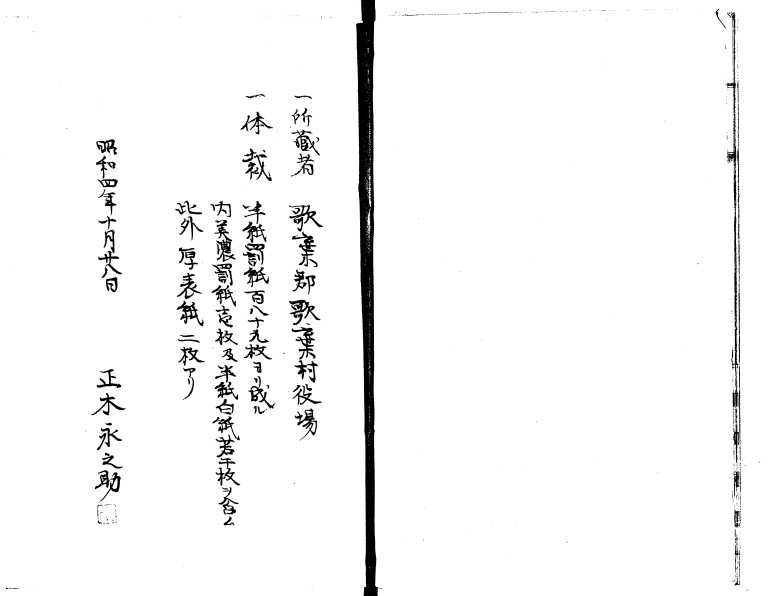 一所蔵者 歌棄郡歌棄村役場
一体裁 半紙罫紙百八十九枚ヨリ成ル
内美濃罫紙壱枚及半紙白紙若干枚ヲ含ム
此外厚表紙二枚アリ
昭和四年十月廿八日 正木永之助